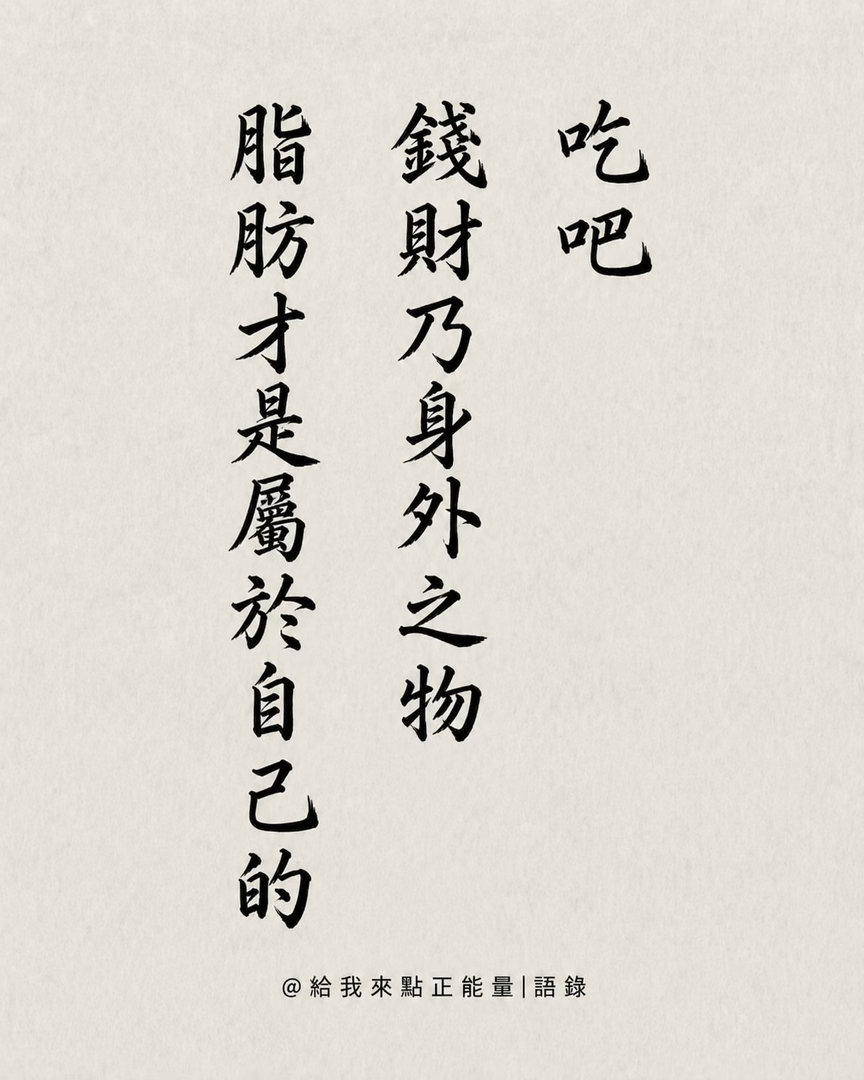 吃吧
錢財乃身外之物
脂肪才是屬於自己的
@給我來點正能量|語錄